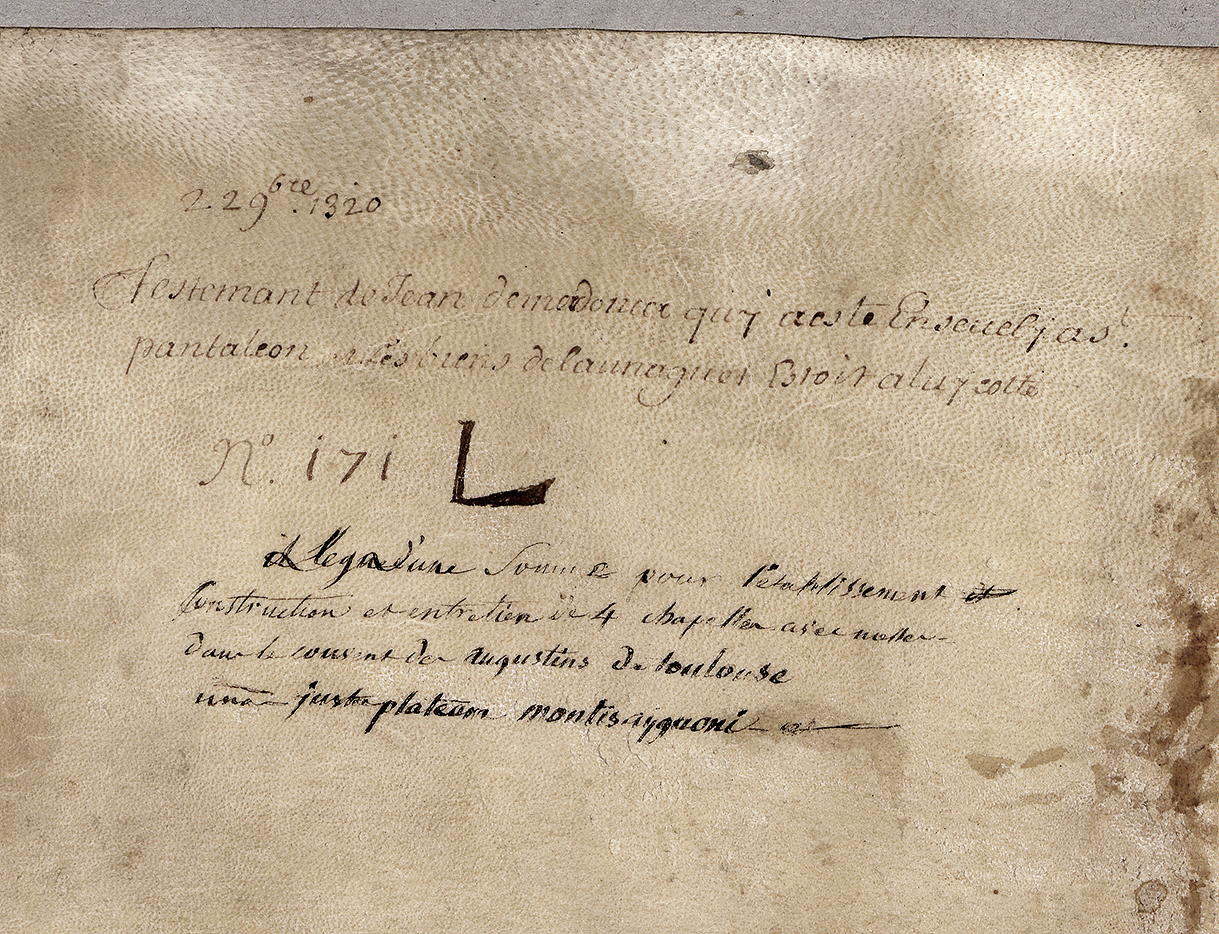 22 9bre. 1320
Testemant de Jean demedouicr quy aeste Enseuely a st.
pantaleon et les biens delaunaguet Broit aluy cotté
N°. 171 L
il legue d'une Somme pour l'établissement et
Construction et entretien de 4 chapelles avec messes
dans le couvent des augustins de toulouse
una justa plateam montisayguoni